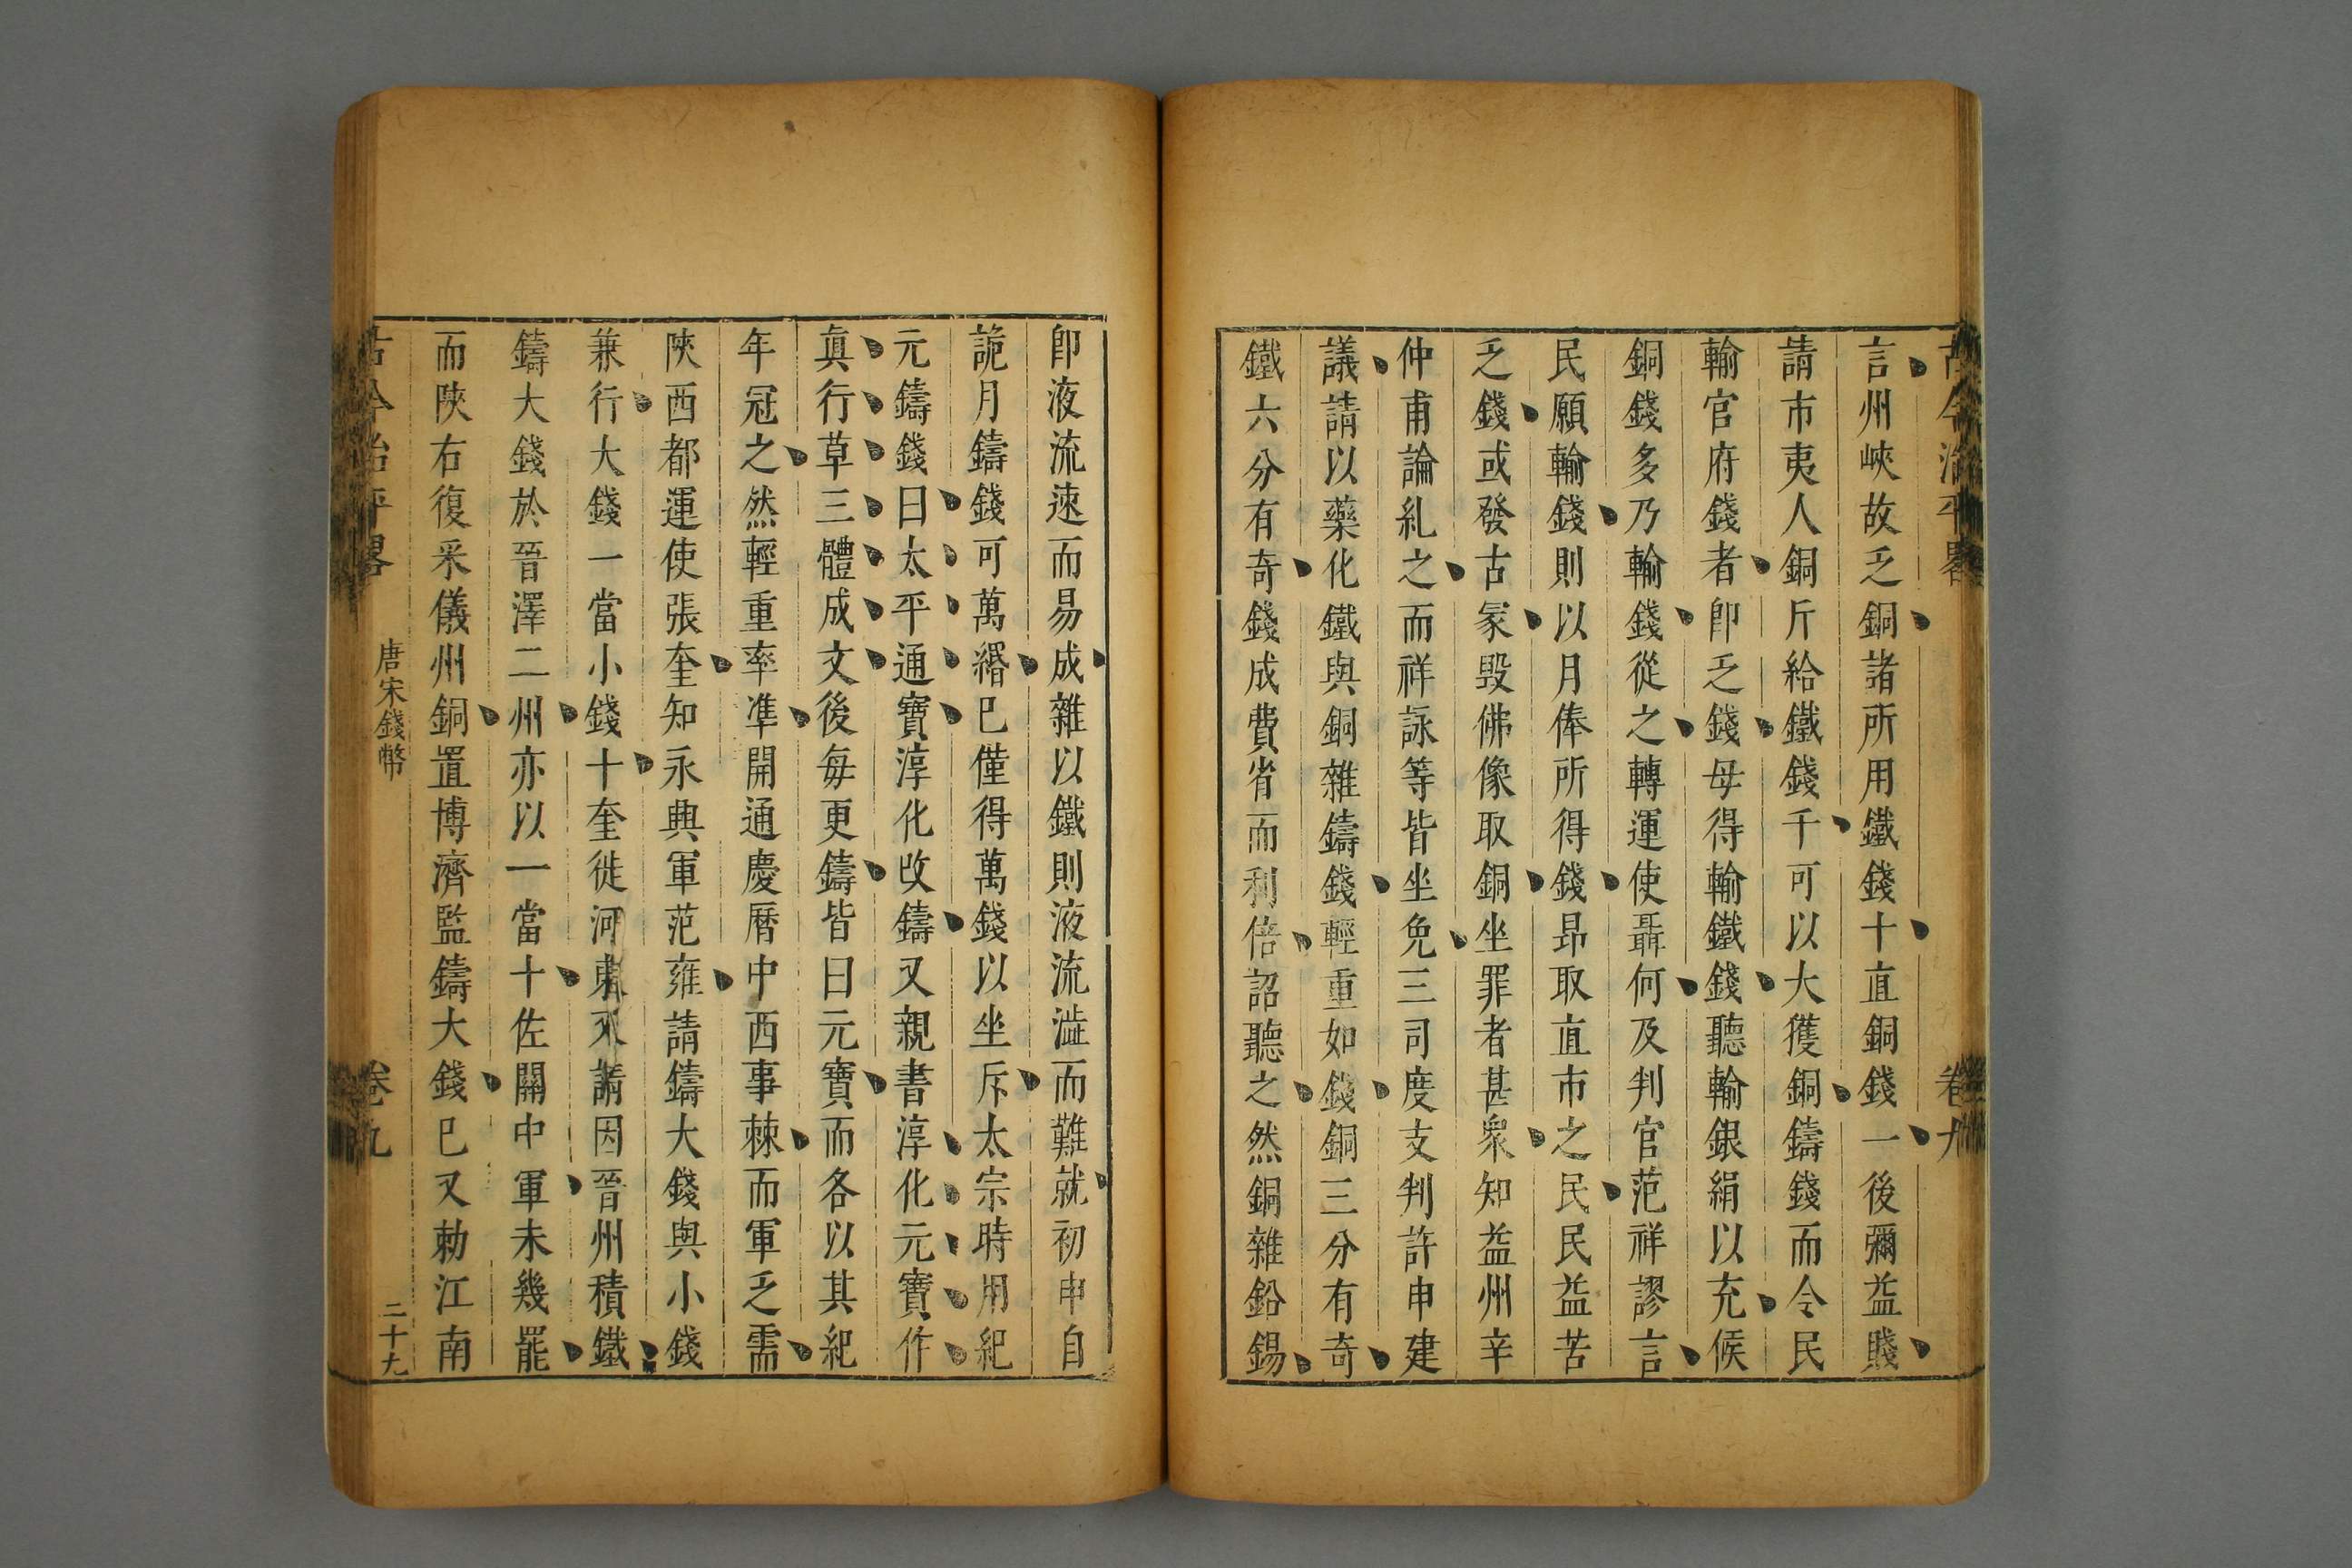 古今治平畧 卷九
言州峽故乏銅諸所用鐵錢十直銅錢一後彌益賤
請市夷人銅斤給鐵錢千可以大獲銅鑄錢而令民
輸官府錢者卽乏錢母得輸鐵錢聽輸銀絹以充候
銅錢多乃輸錢從之轉運使聶何及判官范祥謬言
民願輸錢則以月俸所得錢昂取直市之民民益苦
乏錢或發古冢毀佛像取銅坐罪者甚衆知益州辛
仲甫論糺之而祥詠等皆坐免三司度支判許申建
議請以藥化鐵與銅雜鑄錢輕重如錢銅三分有奇
鐵六分有奇錢成費省而利倍詔聽之然銅雜鉛錫
卽液流速而易成雜以鐵則液流澁而難就初申自
詭月鑄錢可萬緡巳僅得萬錢以坐斥太宗時用紀
元鑄錢曰太平通寶淳化改鑄又親書淳化元寶作
眞行草三體成文後每更鑄皆曰元寶而各以其紀
年冠之然輕重率準開通慶曆中西事棘而軍乏需
陜西都運使張奎知永興軍范雍請鑄大錢與小錢
兼行大錢一當小錢十奎徙河東又請因晉州積鐵
鑄大錢於晉澤二州亦以一當十佐關中軍未幾罷
而陜右復采儀州銅置博濟監鑄大錢巳又勅江南
古今治平畧 唐宋錢幣 卷九 二十九